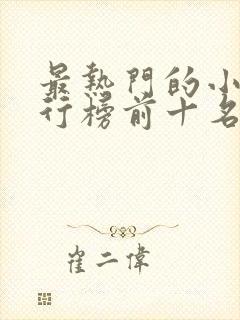 最熱門的小
行榜前十名
崔二偉